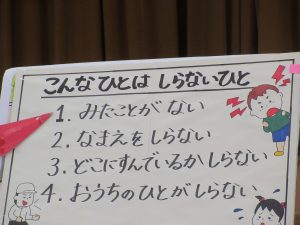 こんなひとは しらないひと
1. みたことが ない
2. なまえを しらない
3. どこにすんでいるか しらない
4. おうちのひとが しらない